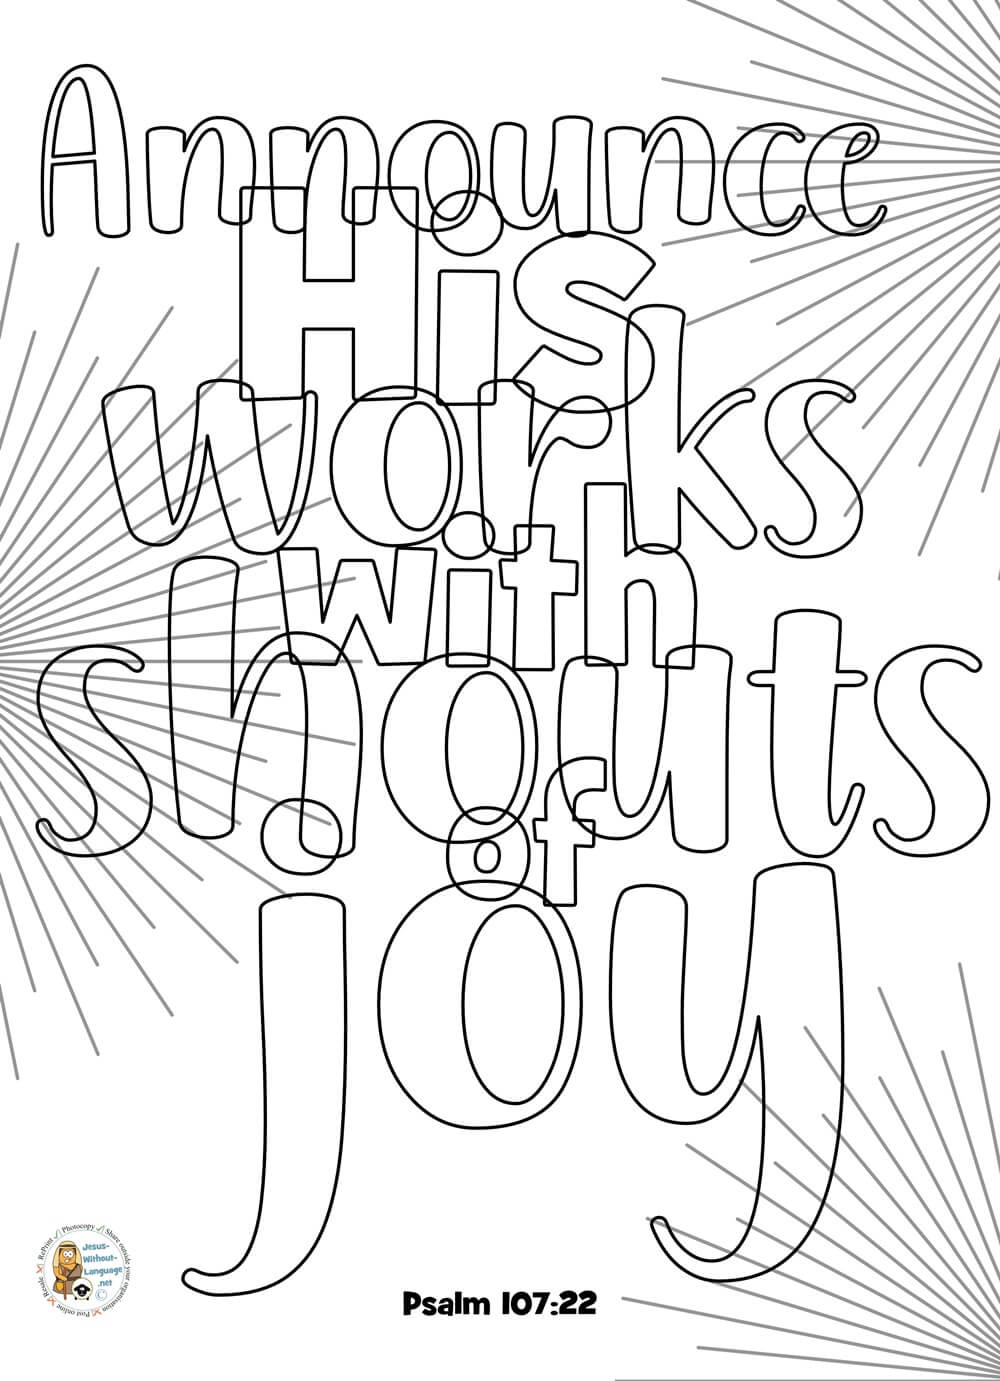 Announce
His
works
with
shouts
of
joy
Psalm 107:22
Jesus-
Without-
Language
.net
©
Photocopy
Share outside your organisation
Post online
Resale
RePrint